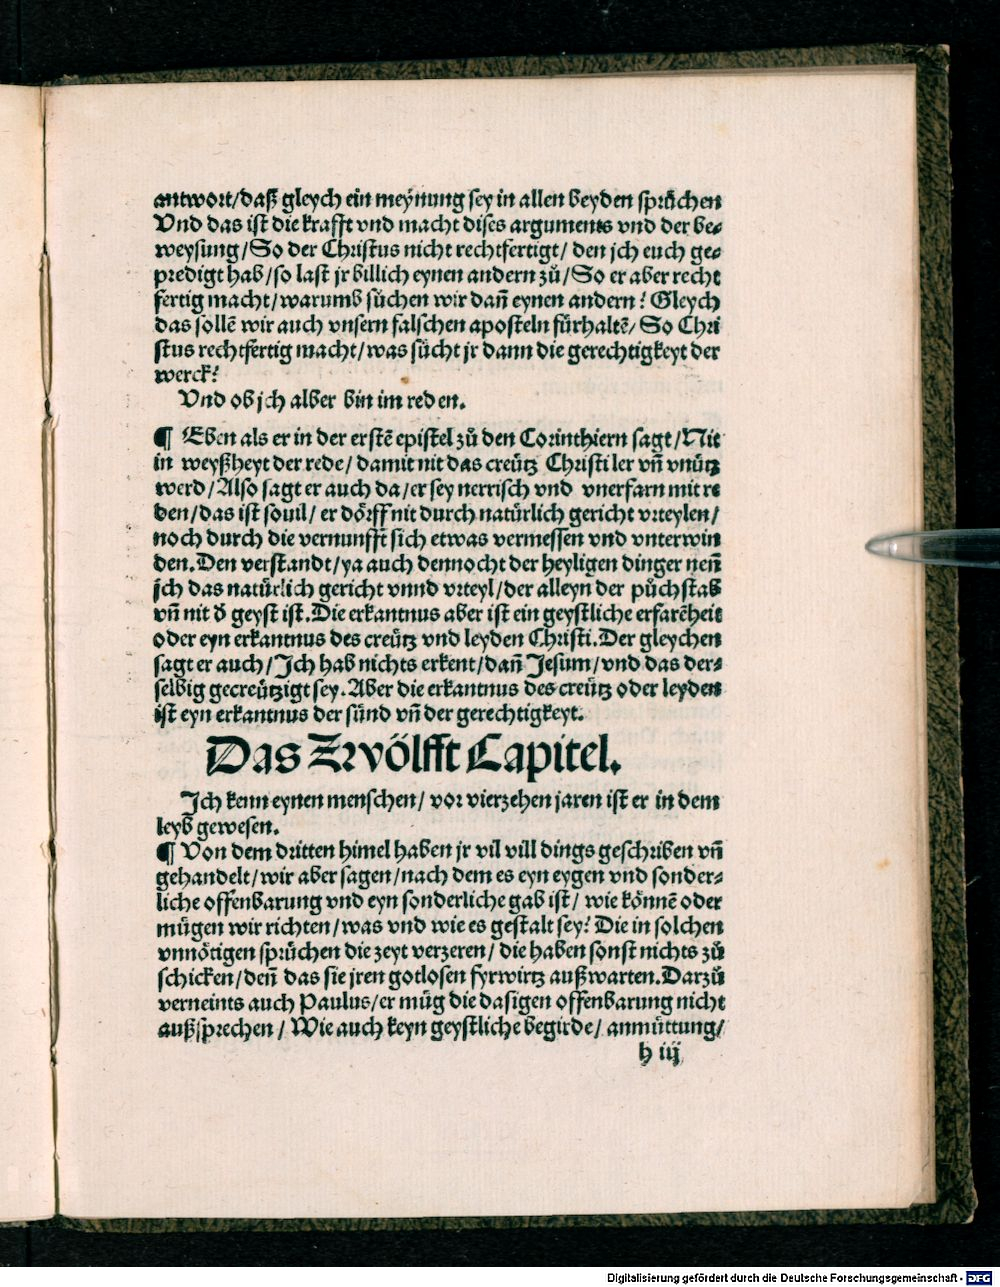 antwort/daß gleych ein meynung sey in allen beyden sprüchen
Vnd das ist die krafft vnd macht dises arguments vnd der be⸗
weysung/So der Christus nicht rechtfertigt/ den jch euch ge⸗
predigt hab/so last jr billich eynen andern zů/So er aber recht
fertig macht/warumb sůchen wir dañ eynen andern? Gleych
das sollē wir auch vnsern falschen aposteln fürhaltē/ So Chri
stus rechtfertig macht/was sůcht jr dann die gerechtigkeyt der
werck?
Vnd ob jch alber bin im reden.
¶ Eben als er in der erstē epistel zů den Corinthiern sagt/Nit
in weyßheyt der rede/ damit nit das creütz Christi ler vñ vnütz
werd/Also sagt er auch da/er sey nerrisch vnd vnerfarn mit re
den/das ist souil/ er dörff nit durch natürlich gericht vrteylen/
noch durch die vernunfft sich etwas vermessen vnd vnterwin
den.Den verstandt/ya auch dennocht der heyligen dinger neñ
jch das natürlich gericht vnnd vrteyl/der alleyn der půchstab
vñ nit d̄ geyst ist.Die erkantnus aber ist ein geystliche erfarēheit
oder eyn erkantnus des creütz vnd leyden Christi.Der gleychen
sagt er auch/Jch hab nichts erkent/dañ Jesum/vnd das der⸗
selbig gecreützigt sey.Aber die erkantnus des creütz oder leyden
ist eyn erkantnus der sünd vñ der gerechtigkeyt.
Das Zwölfft Capitel.
Jch kenn eynen menschen/ vor vierzehen jaren ist er in dem
leyb gewesen.
¶ Von dem dritten himel haben jr vil vill dings geschriben vñ
gehandelt/wir aber sagen/nach dem es eyn eygen vnd sonder⸗
liche offenbarung vnd eyn sonderliche gab ist/ wie könnē oder
mügen wir richten/was vnd wie es gestalt sey? Die in solchen
vnnötigen sprüchen die zeyt verzeren/ die haben sonst nichts zů
schicken/deñ das sie jren gotlosen fyrwirtz außwarten.Darzů
verneints auch Paulus/er müg die dasigen offenbarung nicht
außsprechen/ Wie auch keyn geystliche begirde/ anmüttung/
h iij
Digitalisierung gefördert durch die Deutsche Forschungsgemeinschaft - DFG